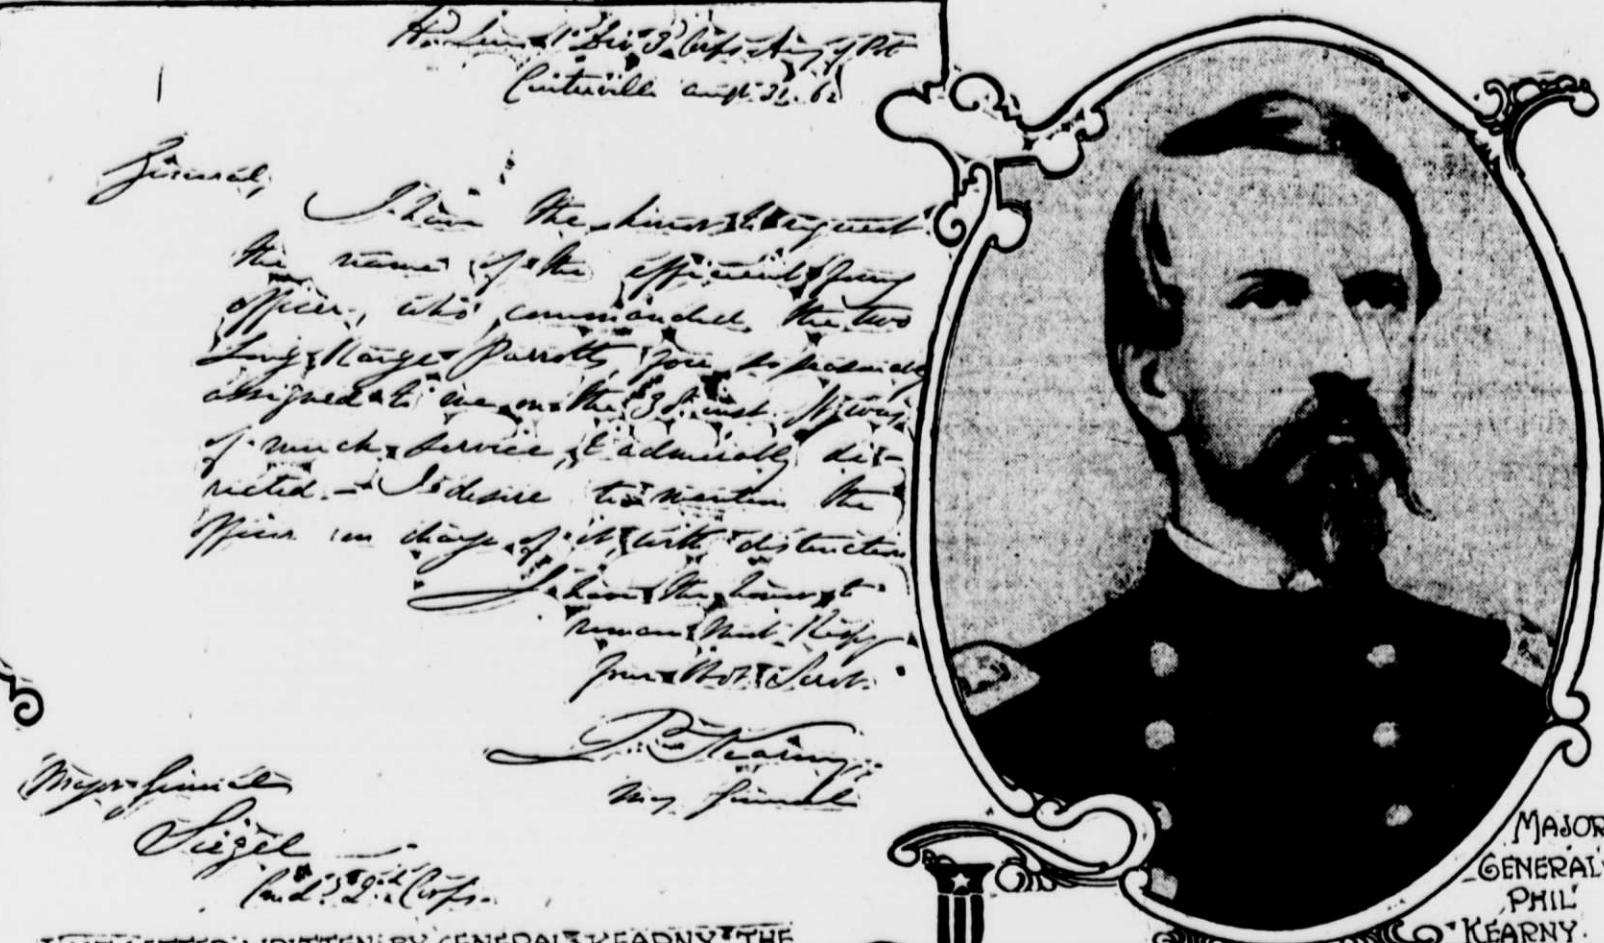 Hd. Qrs. 1st Div 3d Corps Army of Pot
Centreville Augt. 31. 62
General,
I have the honor to request
the name of the efficient young
officer, who commanded the two
Long Range Parrotts, you so
assigned to me on the inst. It was
of much service, & admirably di-
rected. — I desire to mention the
officer in charge of it, with distinction
I have the honor to
remain Most Resp
Your Obt. Servt.
P. Kearny,
Maj General
Major General
Siegel
Comd. Corps.
LETTER WRITTEN BY GENERAL KEARNY THE
MAJOR
GENERAL
PHIL
KEARNY.